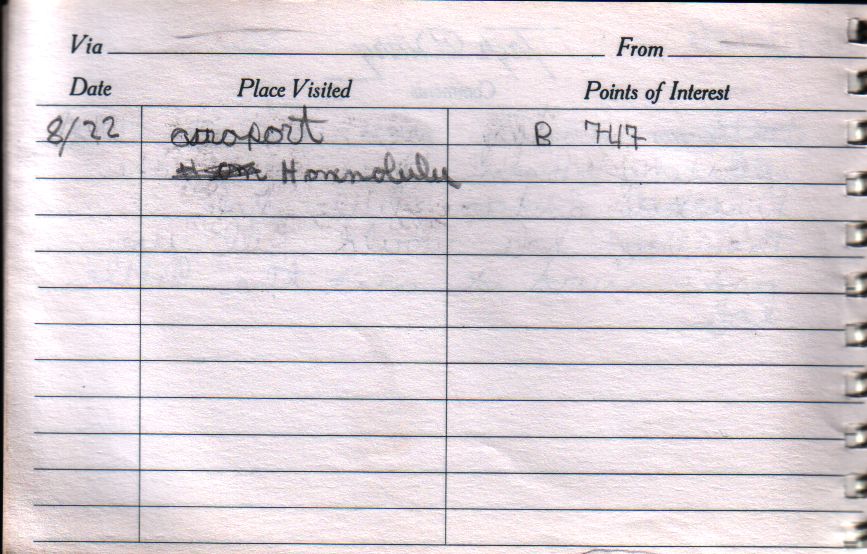 Via From
Date Place Visited Points of Interest
8/22 airoport B 747
Honnolulu